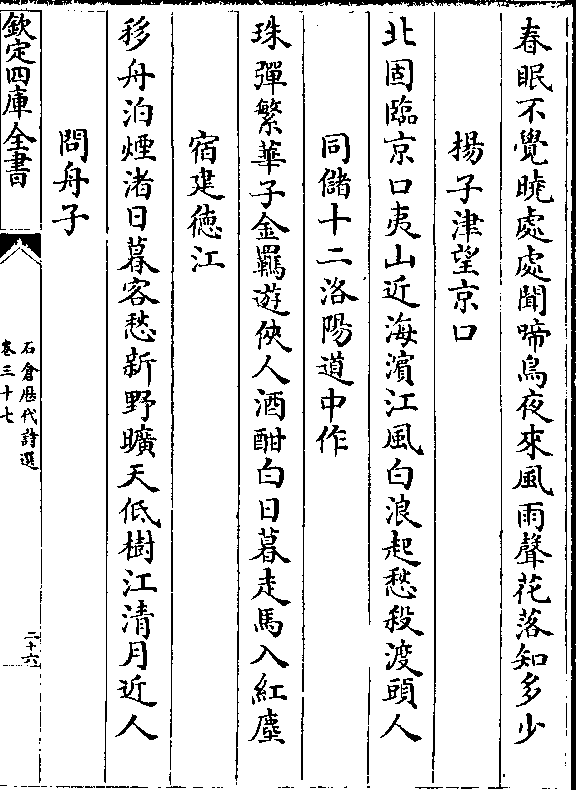 春眠不覺曉處處聞啼鳥夜來風雨聲花落知多少
揚子津望京口
北固臨京口夷山近海濵江風白浪起愁殺渡頭人
同儲十二洛陽道中作
珠彈繁華子金羈遊俠人酒酣白日暮走馬入紅塵
宿建德江
移舟泊煙渚日暮客愁新野曠天低樹江清月近人
問舟子
欽定四庫全書
石倉歷代詩選
卷三十七
二十六